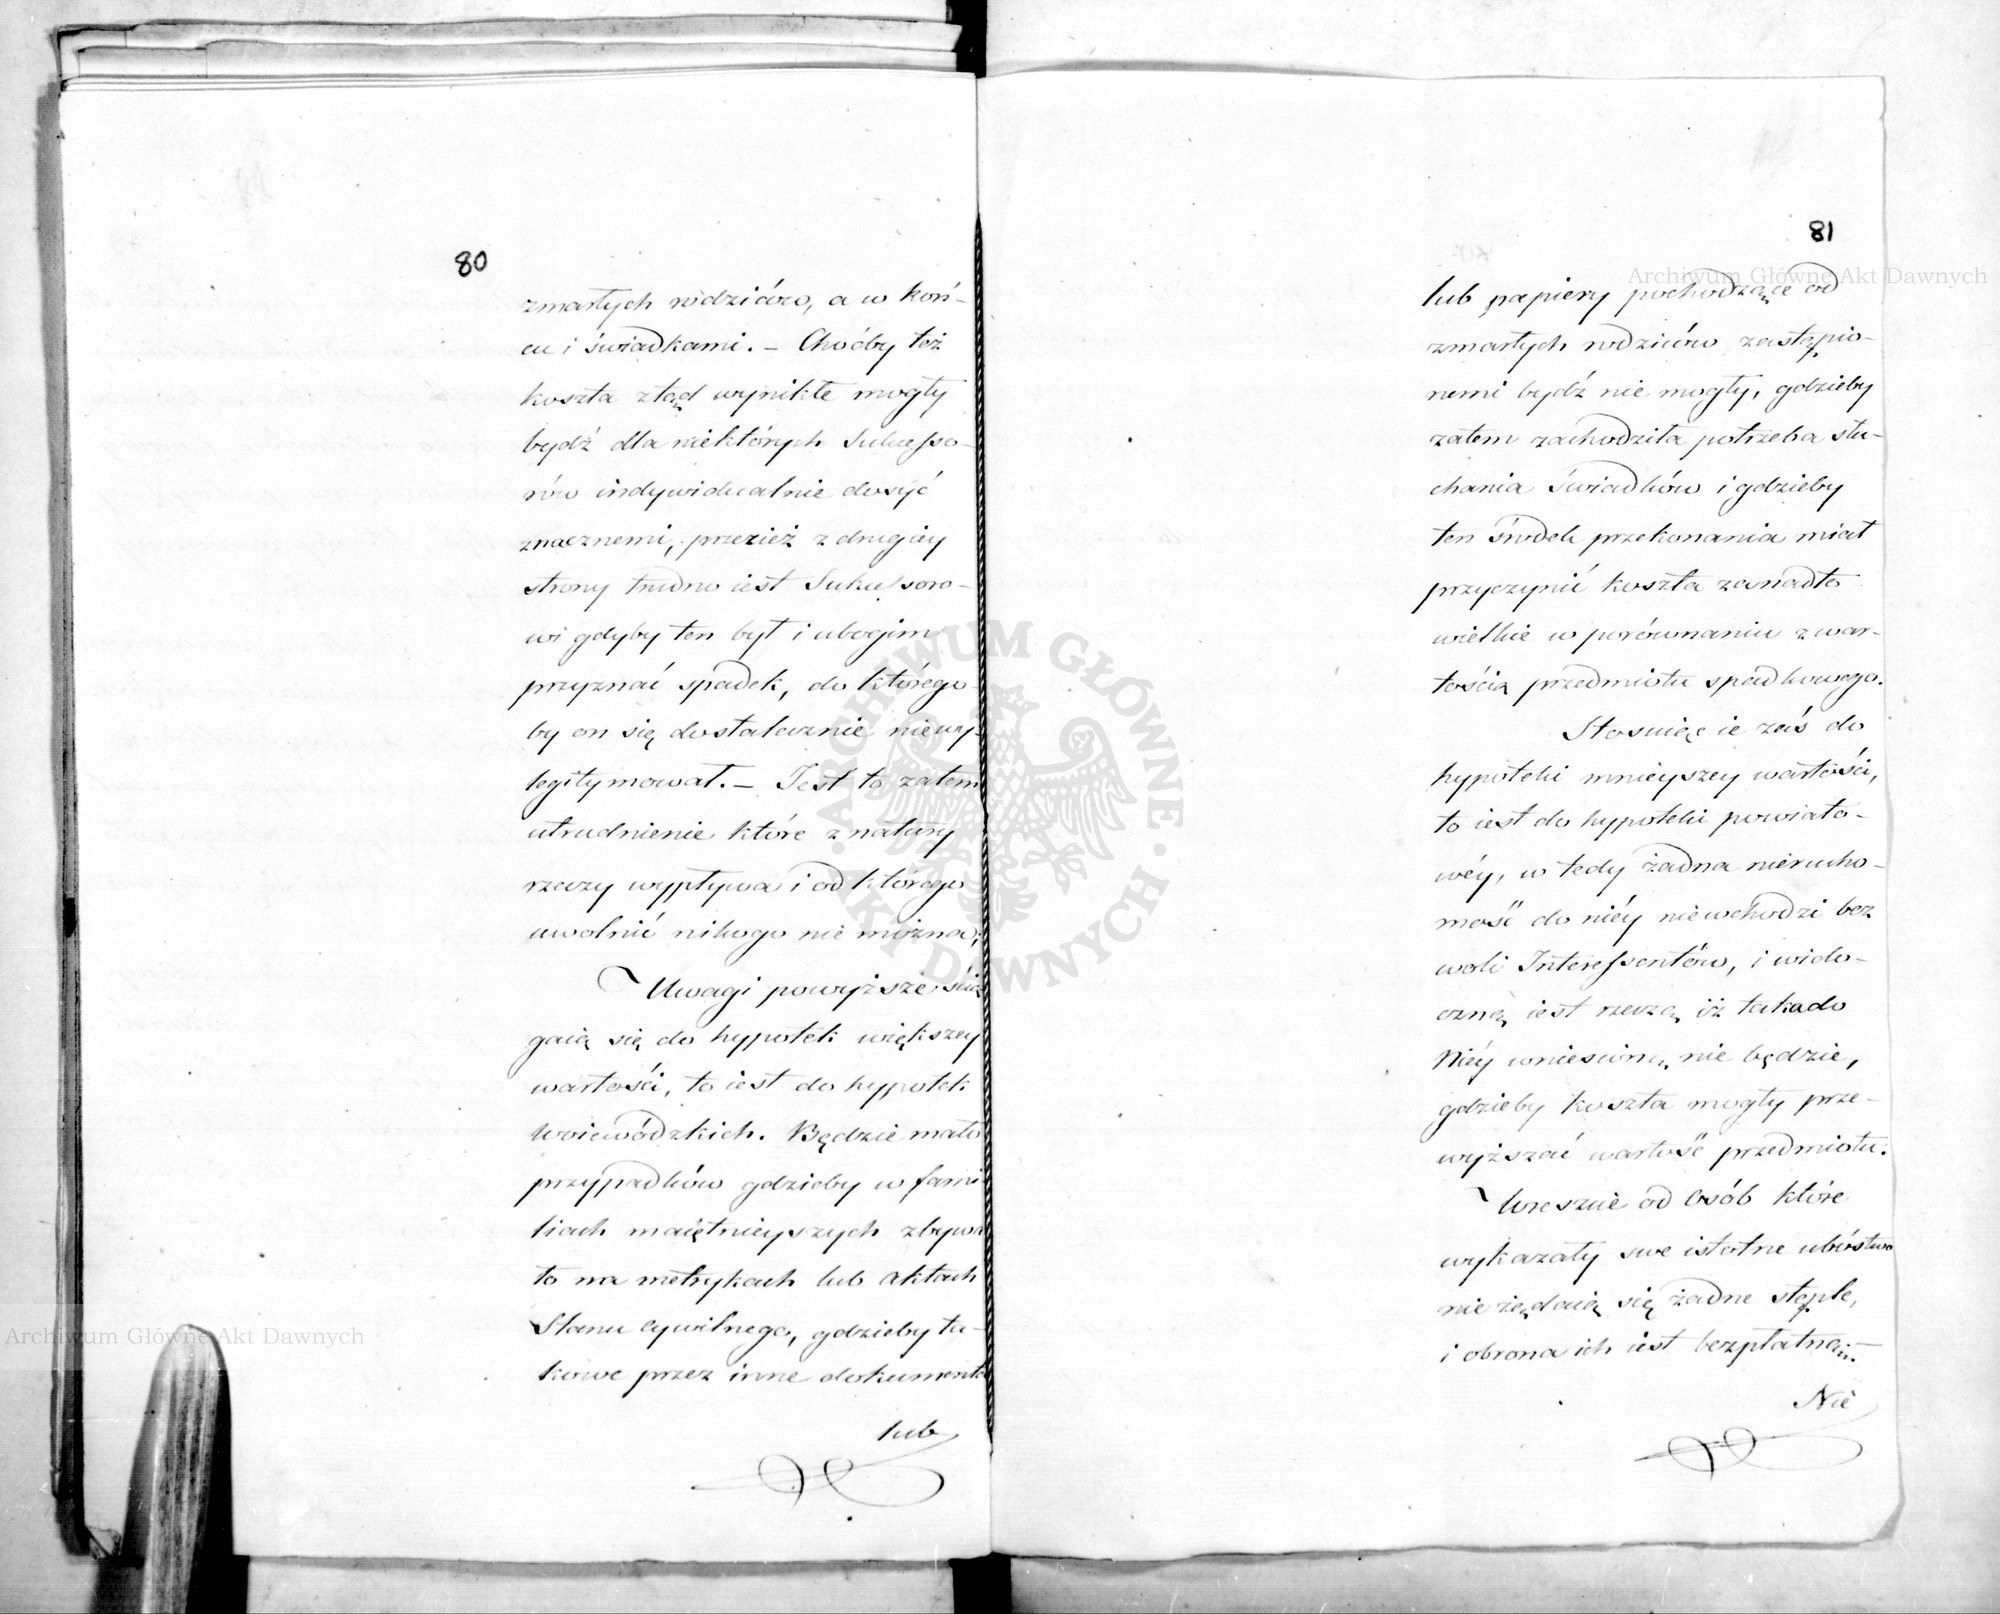 80
zmarłych rodziców, a w koń-
cu i świadkami. – Choćby też
koszta ztąd wynikłe mogły
bydź dla niektórych Sukcesso-
rów indywidualnie dosyć
znacznemi, przecież z drugiey
strony trudno iest Sukcessoro-
wi gdyby ten był i ubogim
przyznać spadek, do którego
by on się dostatecznie niewy-
legitymował. – Jest to zatem
utrudnienie które z natury
rzeczy wypływa i od którego
uwolnić nikogo nie można;
Uwagi powyższe ścią
gaią się do hypotek większey
wartości, to iest do hypotek
Woiewódzkich. Będzie mało
przypadków gdzieby w fami-
liach maiętnieyszych zbywa
ło na metrykach lub aktach
Stanu cywilnego, gdzieby ta-
kowe przez inne dokumenta
lub
81
lub papiery pochodzące od
zmarłych rodziców zastąpio-
nemi bydź nie mogły, gdzieby
zatem zachodziła potrzeba słu-
chania świadków i gdzieby
ten środek przekonania miał
przyczynić koszta zanadto
wielkie w porównaniu z war-
tością przedmiotu spadkowego.
Stosuiąc ie zaś do
hypoteki mnieyszey wartości,
to iest do hypoteki powiato-
wéy, w tedy żadna nierucho-
mość do niéy niewchodzi bez
woli Interessentów, i wido-
czną iest rzeczą iż taka do
Niéy wniesioną nie będzie,
gdzieby koszta mogły prze-
wyższać wartość przedmiotu.
Wreszcie od Osób które
wykazały swe istotne ubóstwo
nie żądaią się żadne stęple,
i obrona ich iest bezpłatna.
Nie
Archiwum Główne Akt Dawnych
Archiwum Główne Akt Dawnych
ARCHIWUM GŁÓWNE · AKT DAWNYCH ·